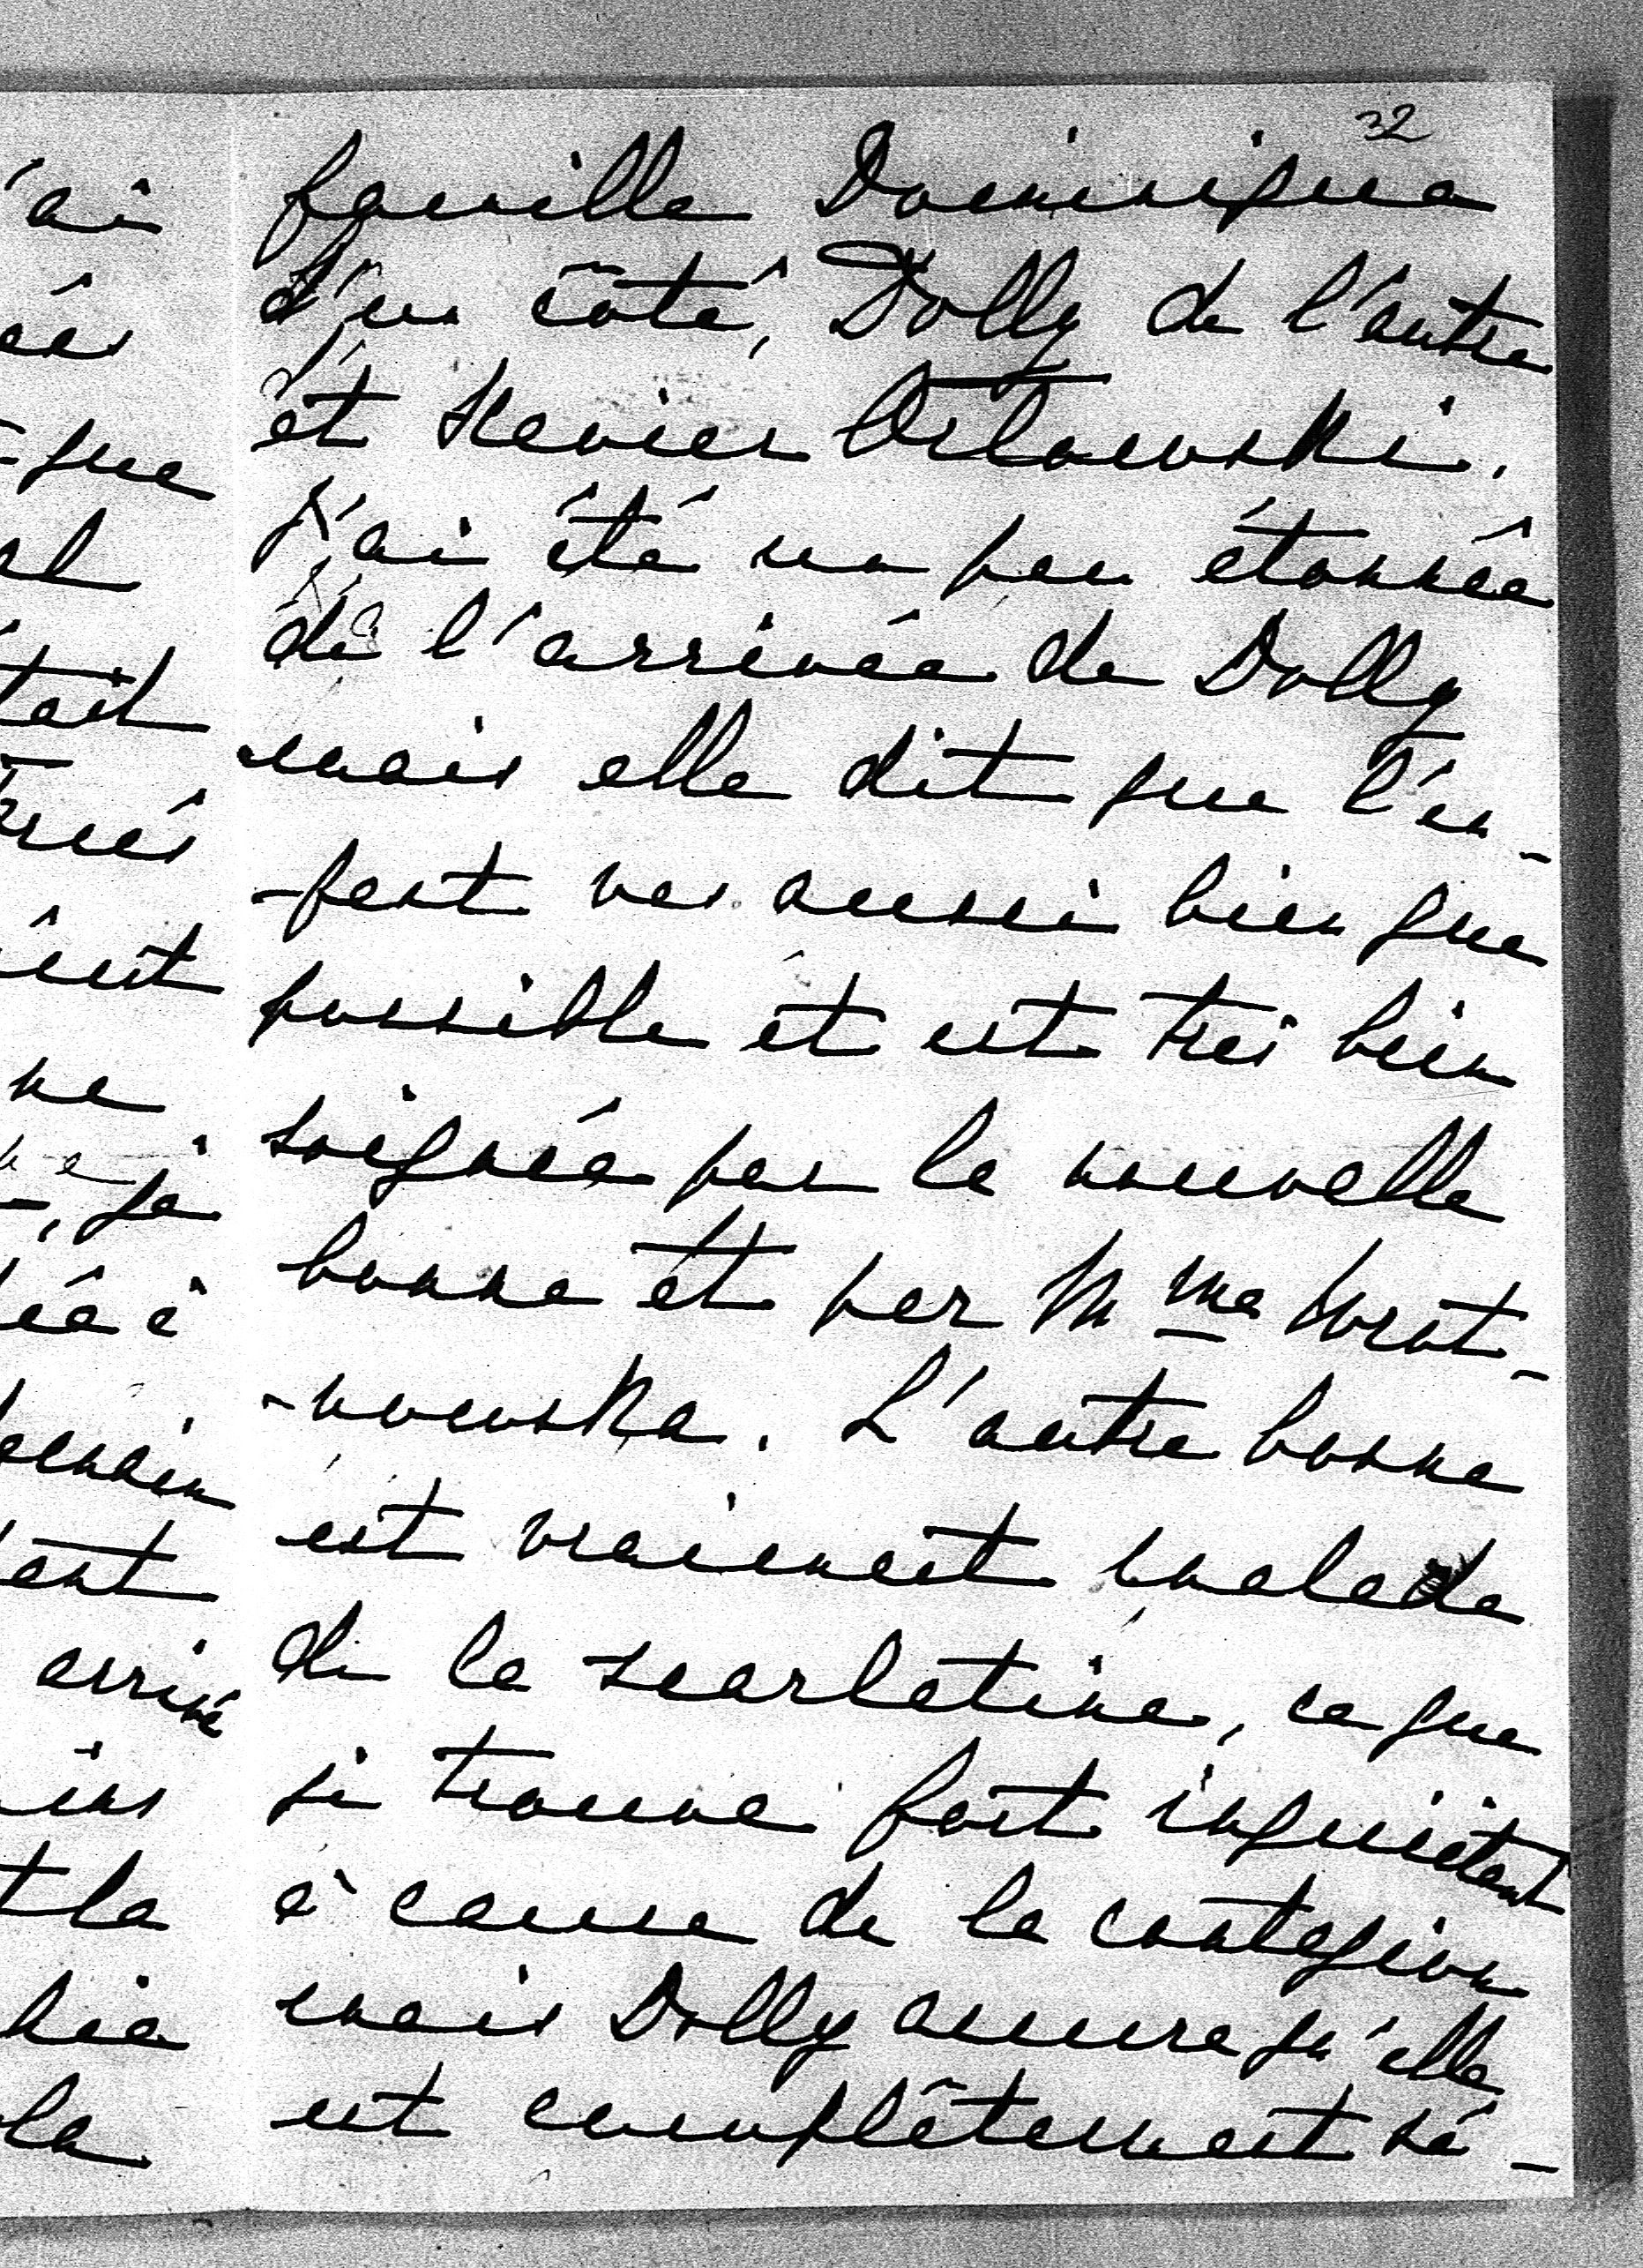 32
famille Dominique
d'un côté, Dolly de l'autre
et Xavier Orlowski.
J'ai été un peu étonnée
de l'arrivée de Dolly
mais elle dit que l'en-
-fant va aussi bien que
possible et est très bien
soignée par la nouvelle
bonne et par Mme Wrot-
-nowska. L'autre bonne
est vraiment malade
de la scarlatine, ce que
je trouve fort inquiétant
à cause de la contagion
mais Dolly assure qu'elle
est complètement sé-
'ai
que
tait
ne
je
arrivé
la
la